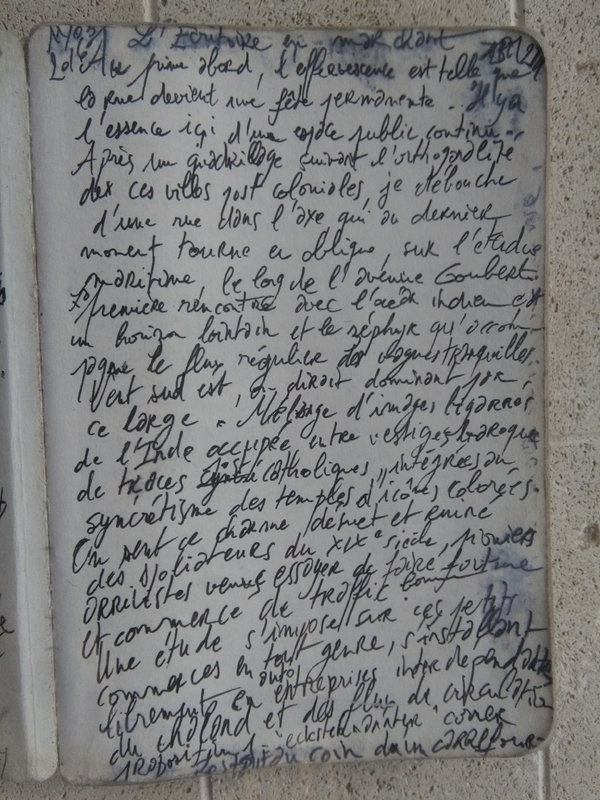 L'Ecritoire en marchant
De prime abord, l'effervescence est telle que
la rue devient une fête permanente. Il y a
l'essence ici d'un espace public continu.
Après un quadrillage suivant l'orthogonalité
des ces villes post coloniales, je débouche
d'une rue dans l'axe qui au dernier
moment tourne en oblique, sur l'étendue
maritime, le long de l'avenue Goubert.
La première rencontre avec l'océan indien est
un horizon lointain et le zéphyr qu'accom-
pagne le flux régulier des vagues tranquilles.
Vent sud est, on dirait dominant par
ce large. Mélange d'images bigarrées
de l'Inde occupée entre vestiges baroques
de traces catholiques, intégrées au
syncrétisme des temples d'icônes colorées.
On sent ce charme désuet et ruiné
des spoliateurs du XIXe siècle, pionniers
arrivistes venus essayer de faire fortune
et commerce de traffic
Une étude s'impose sur ces petits
commerces en tout genre, s'installant
librement en auto entreprises interdépendantes
du chaland et des flux de circulation
Proposition 1 "corner
au coin d'un carrefour